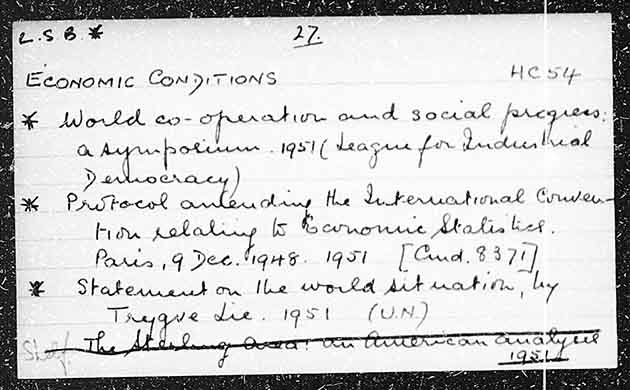 L.S B. * 27.
ECONOMIC CONDITIONS HC 54
* World co-operation and social progress:
a symposium. 1951 (League for Industrial
Democracy)
* Protocol amending the International Conven-
tion relating to Economic Statistics.
Paris, 9 Dec. 1948. 1951 [Cmd. 8371]
* Statement on the world situation, by
Trygve Lie. 1951 (U.N.)
Shelf. The Sterling area: an American analysis
1951